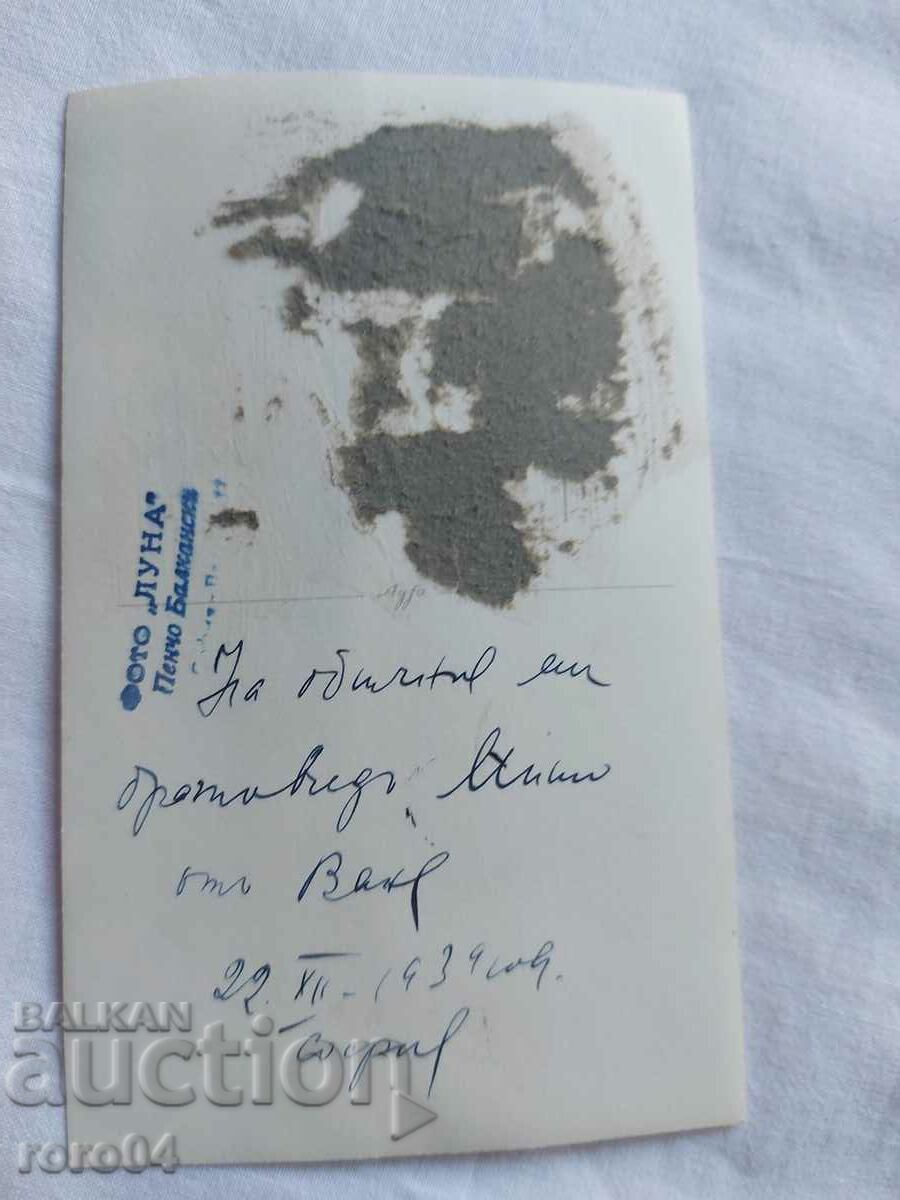 ФОТО „ЛУНА"
Пенчо Балкански
На обичния ми
братовчедъ Мишо
отъ
22. XII - 1939 год.
София
BALKAN
auction
roro04